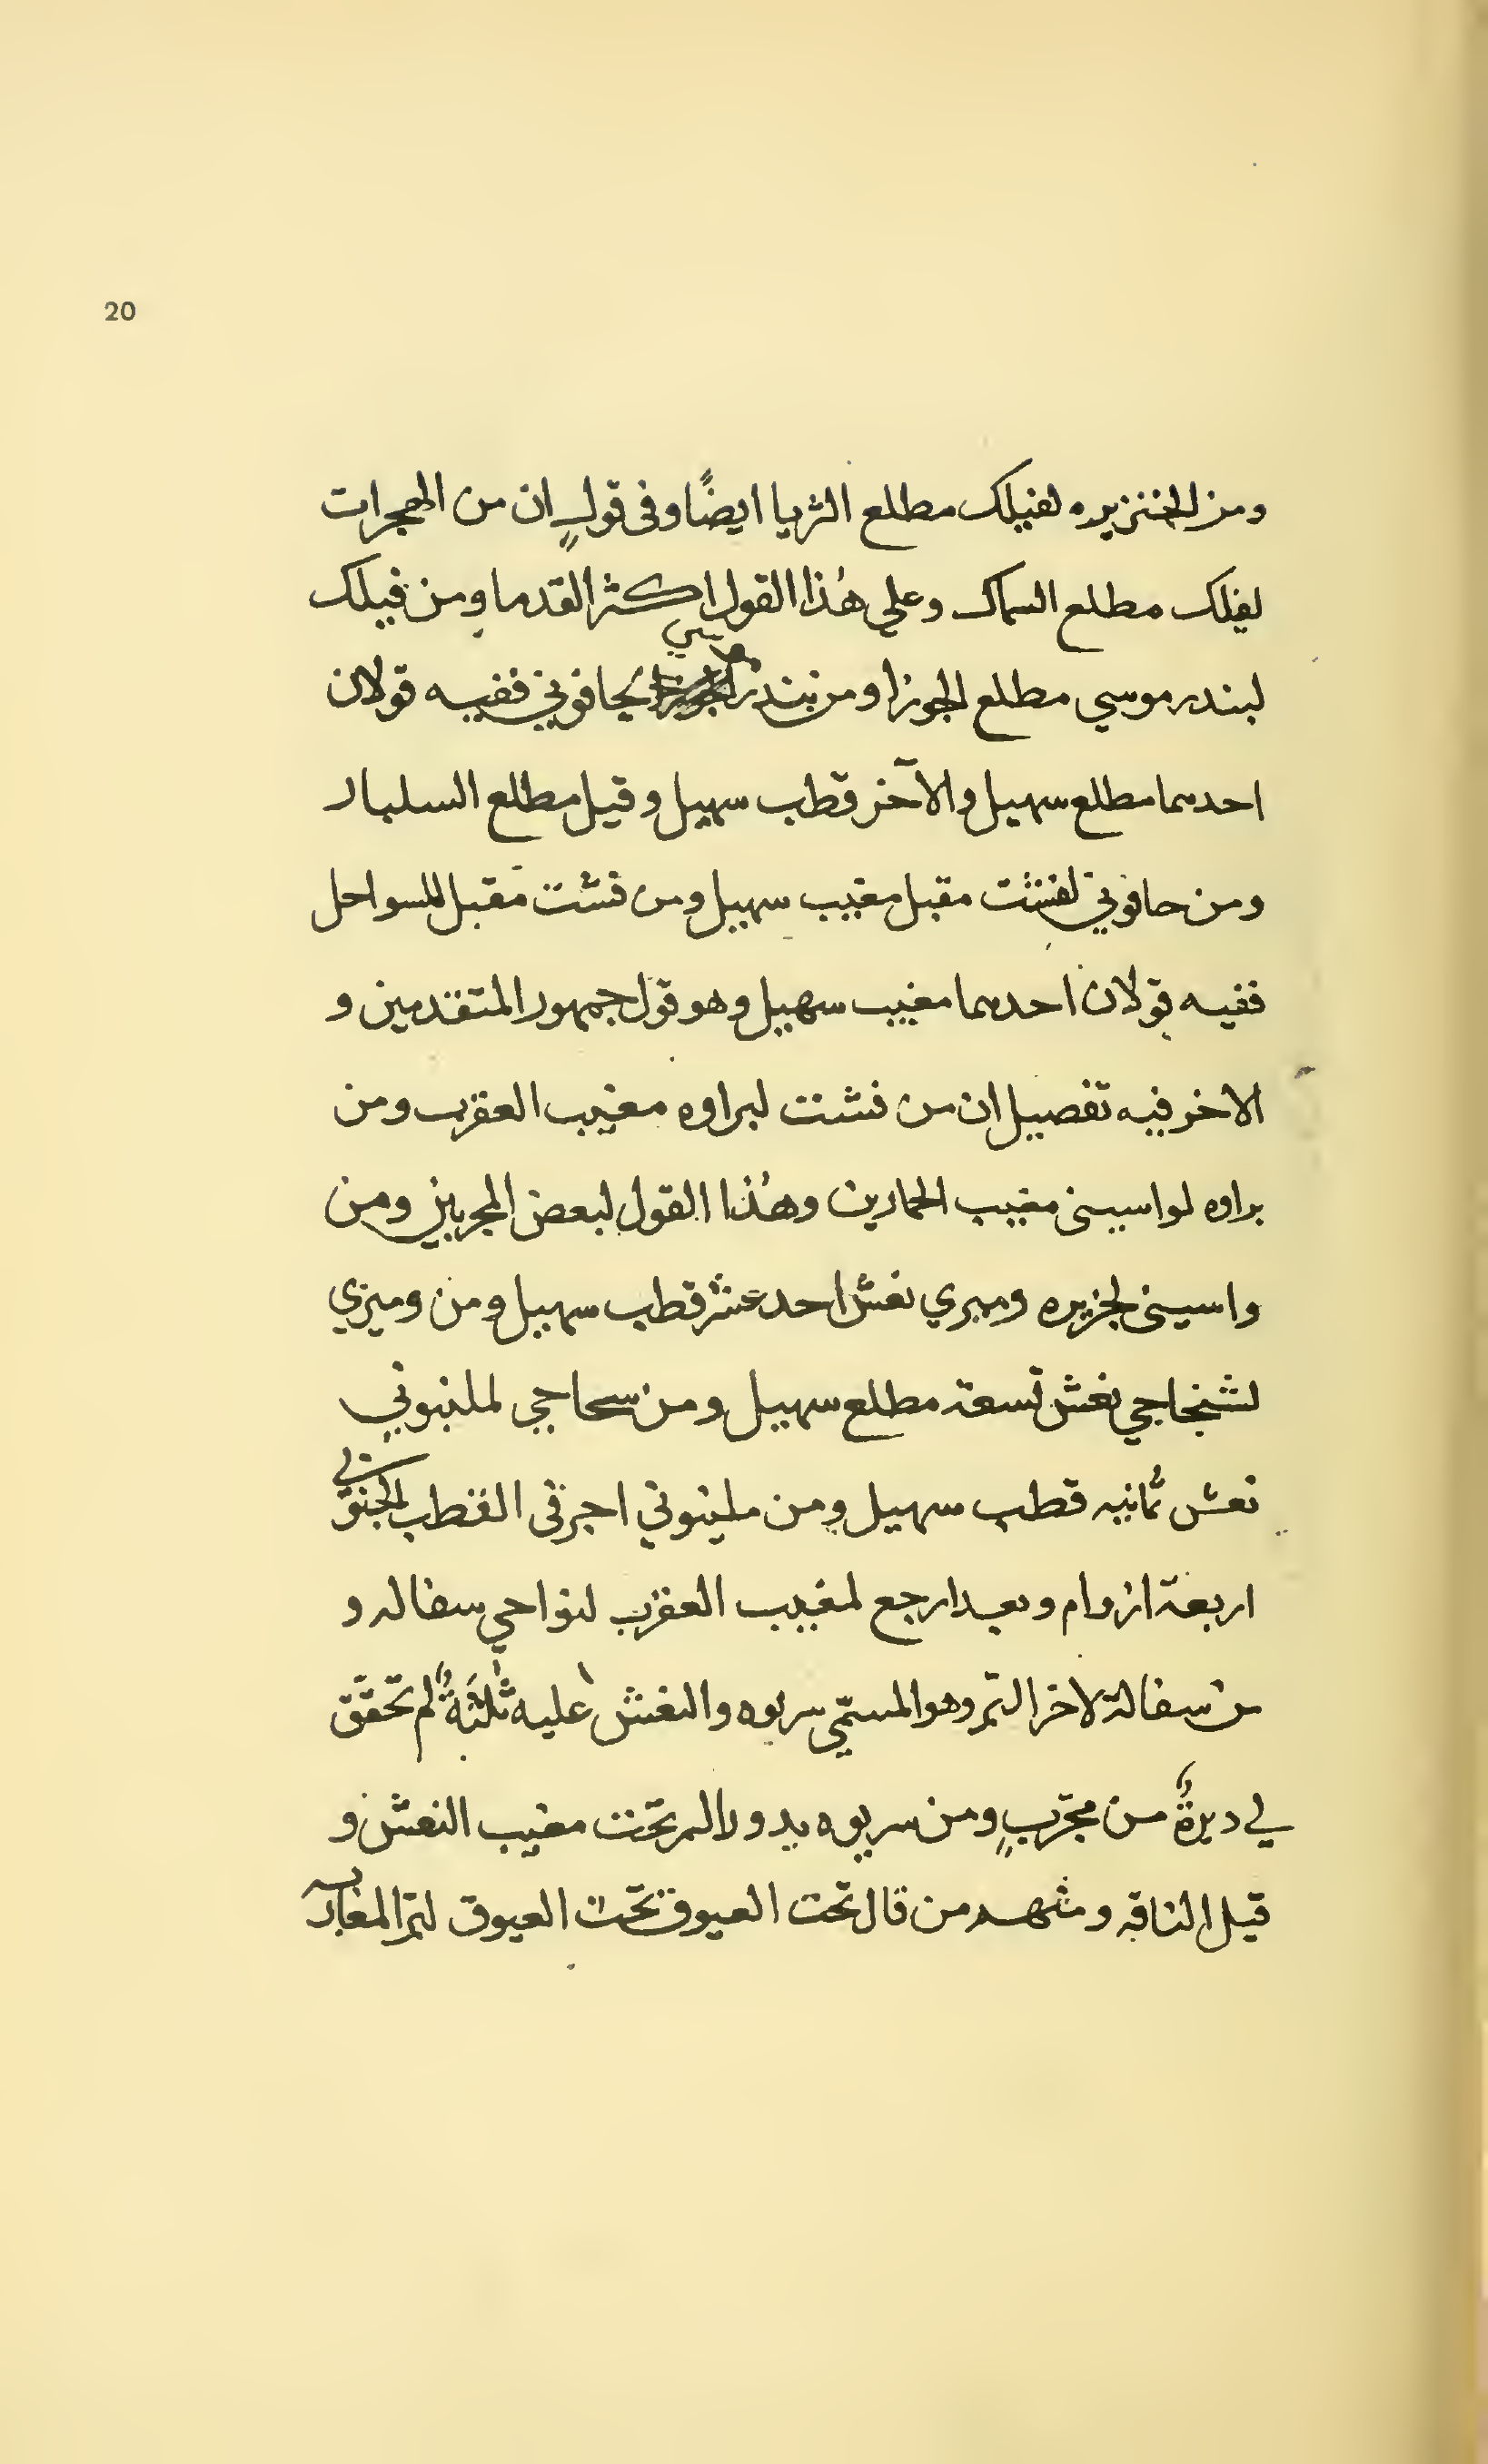 20
ومن الخنزيره لفيلك مطلع الثريا ايضًا وفى قولٍ ان من الهجرات
لفيلك مطلع السماك وعلي هٰذا القول اكثر القدما ومن فيلك
لبندر موسي مطلع الجوزا ومن بندر موسي لحافوني ففيه قولان
احدهما مطلع سهيل والآخر قطب سهيل وقيل مطلع السلبار
ومن حافوني لفشت مقبل مغيب سهيل ومن فشت مقبل للسواحل
ففيه قولان احدهما مغيب سهيل وهو قول جمهور المتقدمين و
الاخر فيه تفصيل ان من فشت لبراوه مغيب العقرب ومن
براوه لواسينى مغيب الحمارين وهٰذا القول لبعض المجربين ومن
واسينى لجزيره وميزي نعش احد عشر قطب سهيل ومن وميزي
لشنجاجي نعش تسعة مطلع سهيل ومن سحاجي لملنبوني
نعش ثمانيه قطب سهيل ومن ملينبوني اجر فى القطب الجنوبي
اربعة ازوام وبعد ارجع لمغيب العقرب لنواحي سفاله و
من سفالة لاخر البر وهو المسمّي سربوه والنعش عليه ثلثةٌ لم تحقّق
لي ديرةٌ من مجرّبٍ ومن سربوه يدور البر تحت مغيب النعش و
قيل الناقه ومنهم من قال تحت العيوق تحت العيوق لبر المغاربه